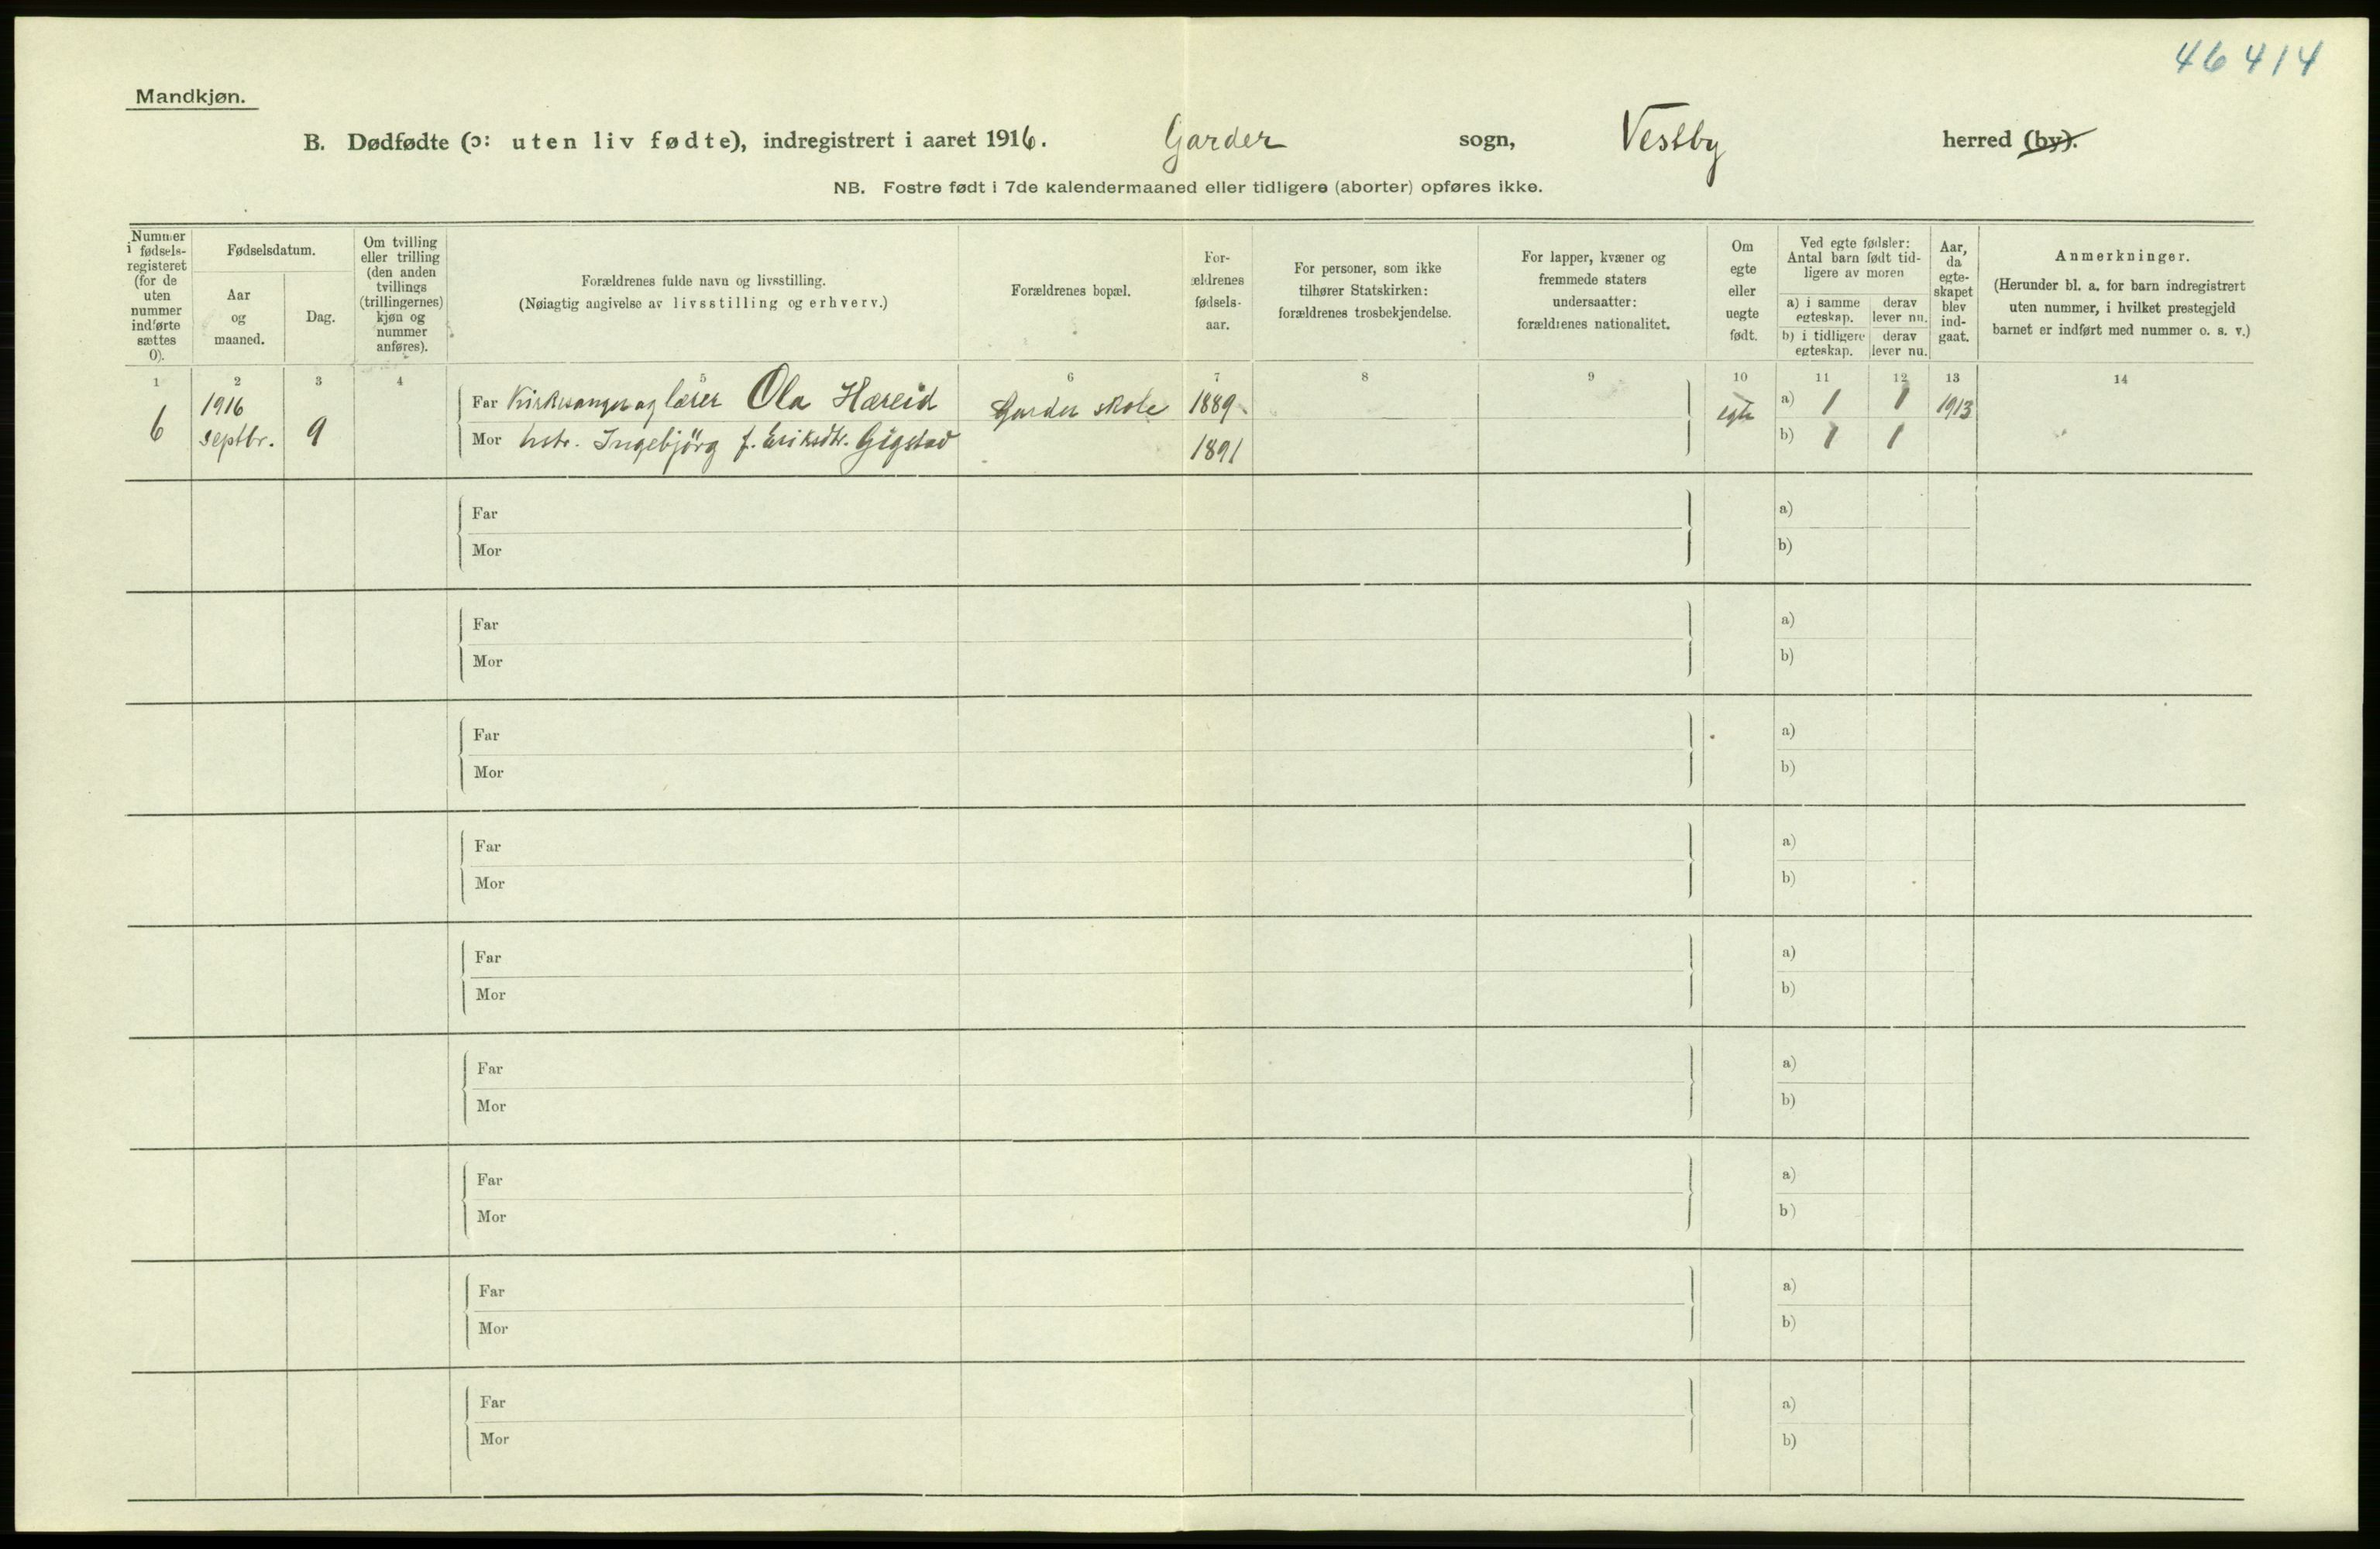 46414
Mandkjøn.
B. Dødfødte (ɔ: uten liv fødte), indregistrert i aaret 1916. Garder sogn, Vestby herred (by).
NB. Fostre født i 7de kalendermaaned eller tidligere (aborter) opføres ikke.
Nummer
i fødsels-
registeret
(for de
uten
nummer
indførte
sættes
0).
Fødselsdatum.
Aar
og
maaned.
Dag.
Om tvilling
eller trilling
(den anden
tvillings
(trillingernes)
kjøn og
nummer
anføres).
Forældrenes fulde navn og livsstilling.
(Nøiagtig angivelse av livsstilling og erhverv.)
Forældrenes bopæl.
For-
ældrenes
fødsels-
aar.
For personer, som ikke
tilhører Statskirken:
forældrenes trosbekjendelse.
For lapper, kvæner og
fremmede staters
undersaatter:
forældrenes nationalitet.
Om
egte
eller
uegte
født.
Ved egte fødsler:
Antal barn født tid-
ligere av moren
a) i samme
egteskap.
derav
lever nu.
b) i tidligere
egteskap.
derav
lever nu.
Aar,
da
egte-
skapet
blev
ind-
gaat.
Anmerkninger.
(Herunder bl. a. for barn indregistrert
uten nummer, i hvilket prestegjeld
barnet er indført med nummer o. s. v.)
1 2 3 4 5 6 7 8 9 10 11 12 13 14
1916 Far Kirkesanger og lærer Ola Hæreid Garder skole 1889. egte a) 1 1 1913
6 Septbr. 9 Mor hstr. Ingebjörg f. Eriksdtr. Gigstad 1891 b) 1 1
Far a)
Mor b)
Far a)
Mor b)
Far a)
Mor b)
Far a)
Mor b)
Far a)
Mor b)
Far a)
Mor b)
Far a)
Mor b)
Far a)
Mor b)
Far a)
Mor b)